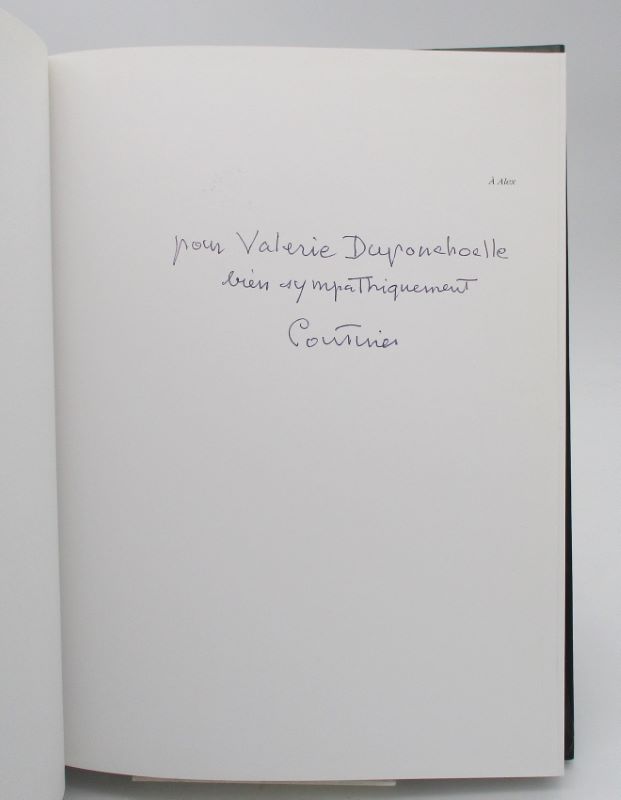 À Alex
pour Valerie Duponchelle
bien sympathiquement